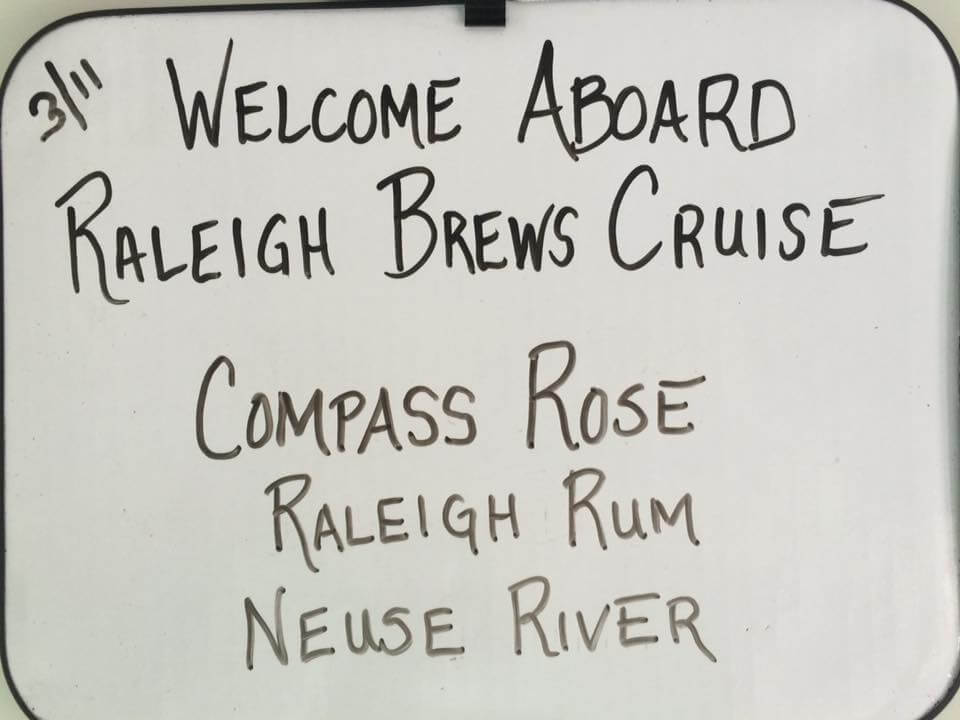 3/11 WELCOME ABOARD
RALEIGH BREWS CRUISE
COMPASS ROSE
RALEIGH RUM
NEUSE RIVER